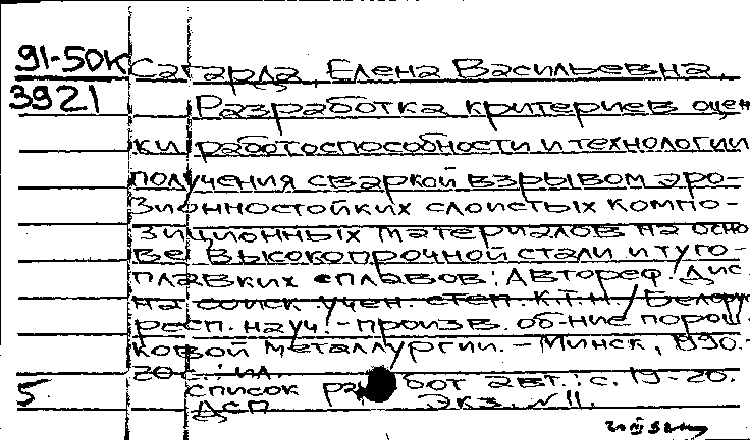 91-50К Сагарда, Елена Васильевна.
3921 Разработка критериев оцен
ки работоспособности и технологии
получения сваркой взрывом эро-
зионностойких слоистых компо-
зиционных материалов на осно
ве высокопрочной стали и туго-
плавких сплавов: Автореф. дис.
на соиск. учен. степ. к.т.н. / Белорус.
респ. науч.-произв. об-ние порош
ковой металлургии. - Минск, 1990.-
20 с.: ил.
5. список работ авт.: с. 19-20.
ДСП Экз. N 11.